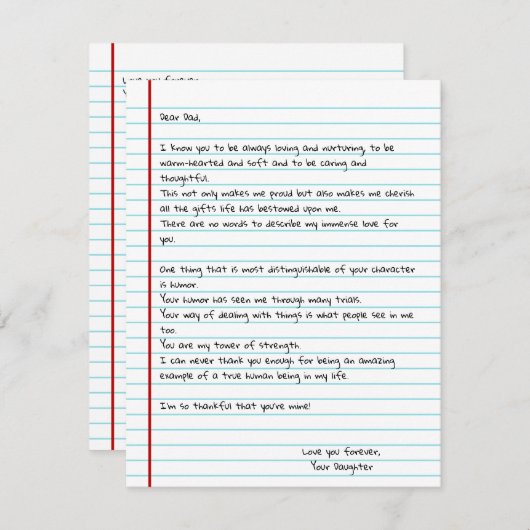 Love you forever,
Dear Dad,
I know you to be always loving and nurturing, to be
warm-hearted and soft and to be caring and
thoughtful.
This not only makes me proud but also makes me cherish
all the gifts life has bestowed upon me.
There are no words to describe my immense love for
you.
One thing that is most distinguishable of your character
is humor.
Your humor has seen me through many trials.
Your way of dealing with things is what people see in me
too.
You are my tower of strength.
I can never thank you enough for being an amazing
example of a true human being in my life.
I'm so thankful that you're mine!
Love you forever,
Your Daughter